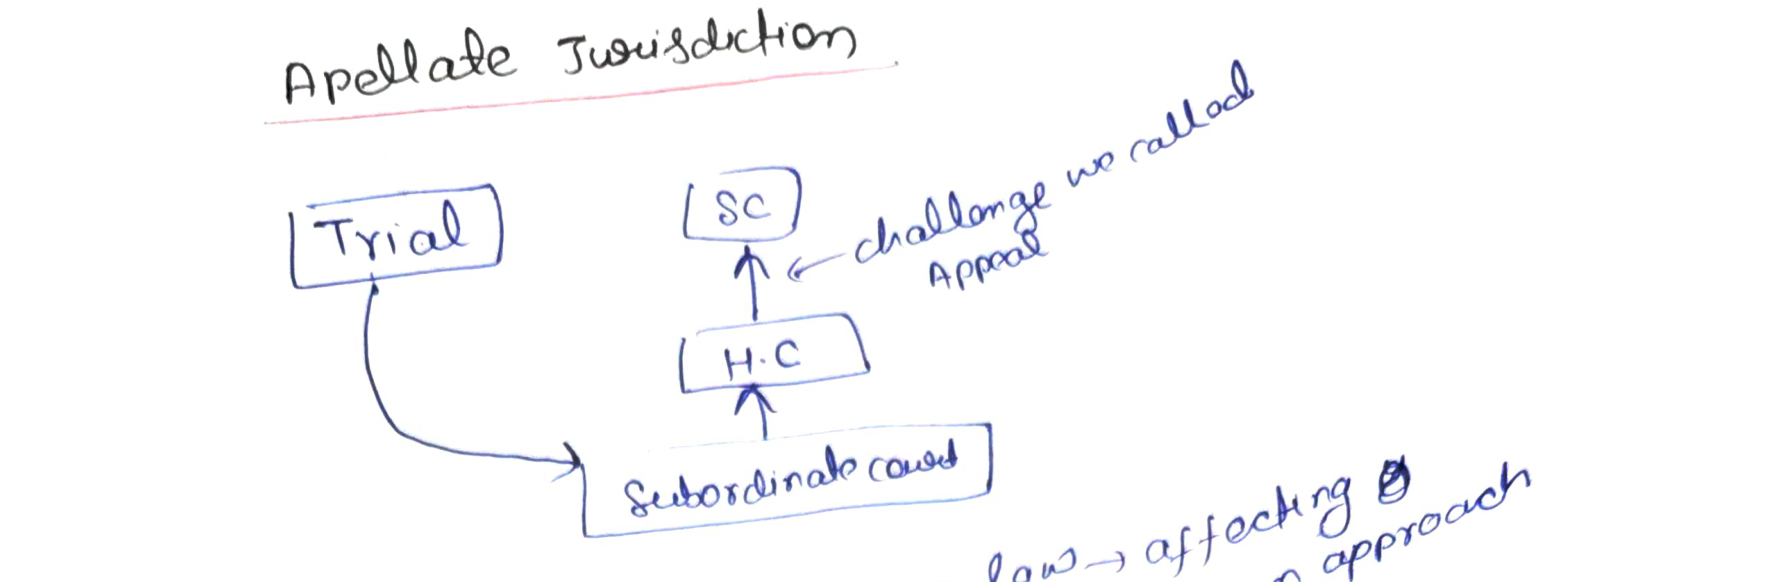 Apellate Jurisdiction
Trial
SC
challange we called
Appeal
H.C
Subordinate court
law → affecting
approach